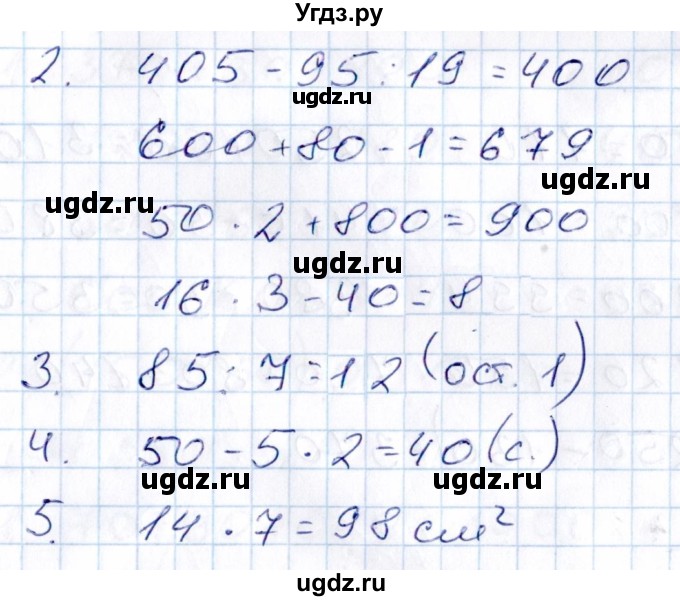 Угдз.ру
2. 405 - 95 : 19 = 400
ugdz.ru
600 + 80 - 1 = 679
ugdz.ru
ugdz.ru
50 · 2 + 800 = 900
ugdz.ru
16 · 3 - 40 = 8
3. 85 : 7 = 12 (ост. 1)
ugdz.ru
4. 50 - 5 · 2 = 40 (с.)
ugdz.ru ugdz.ru
5. 14 · 7 = 98 см²
ugdz.ru